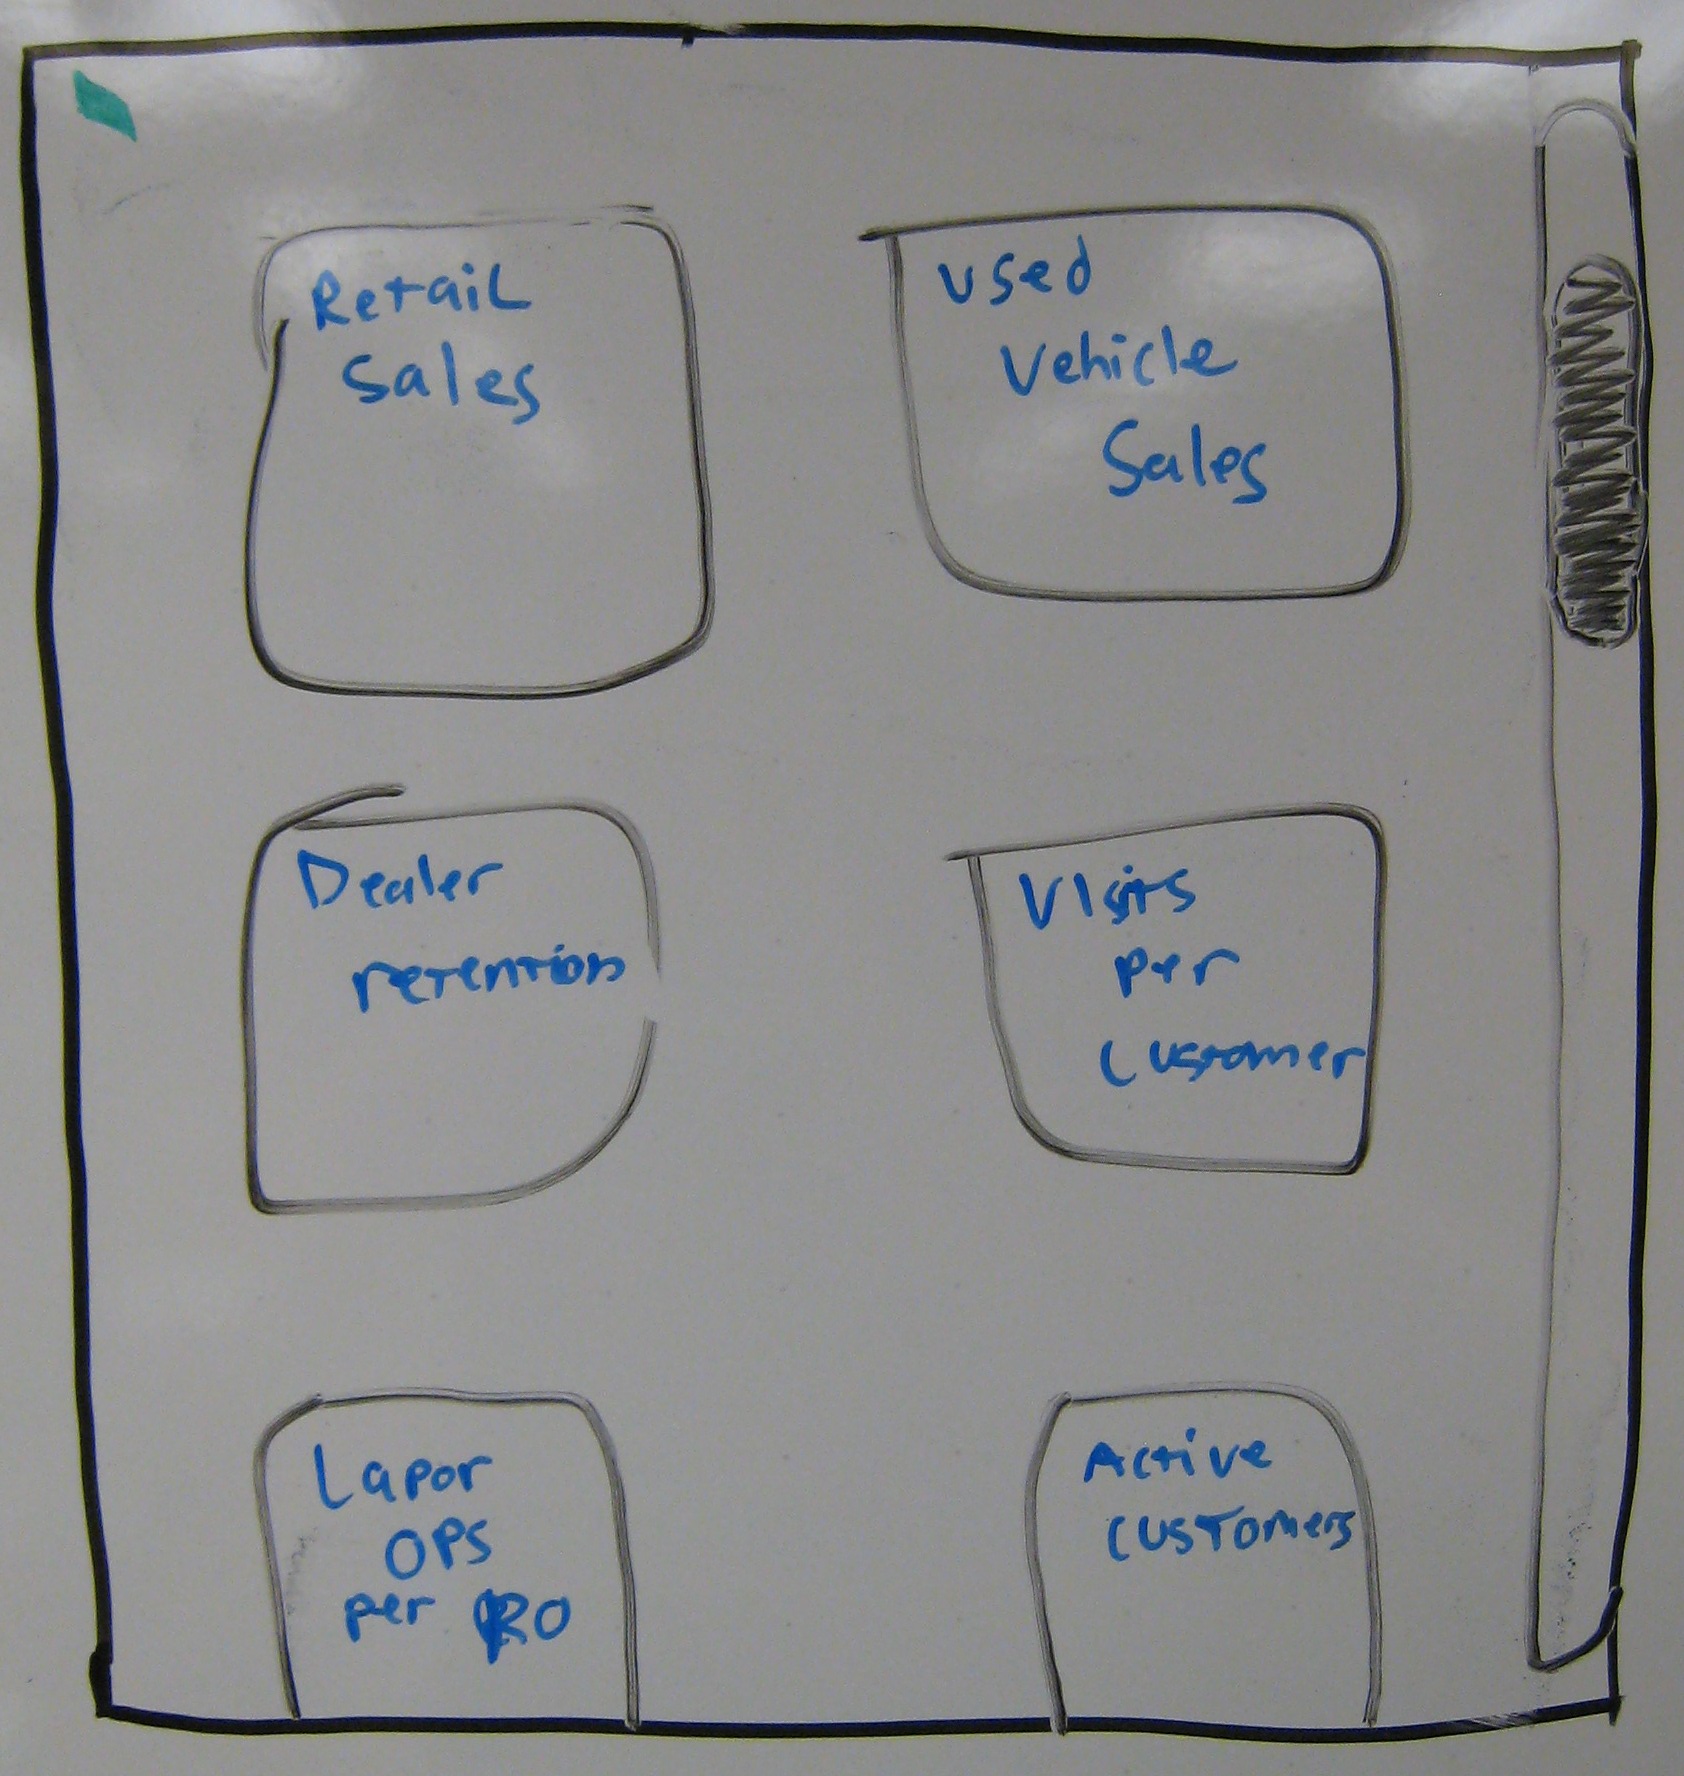 Retail
Sales
Used
Vehicle
Sales
Dealer
retention
Visits
per
Customer
Lapor
OPs
per RO
Active
Customers